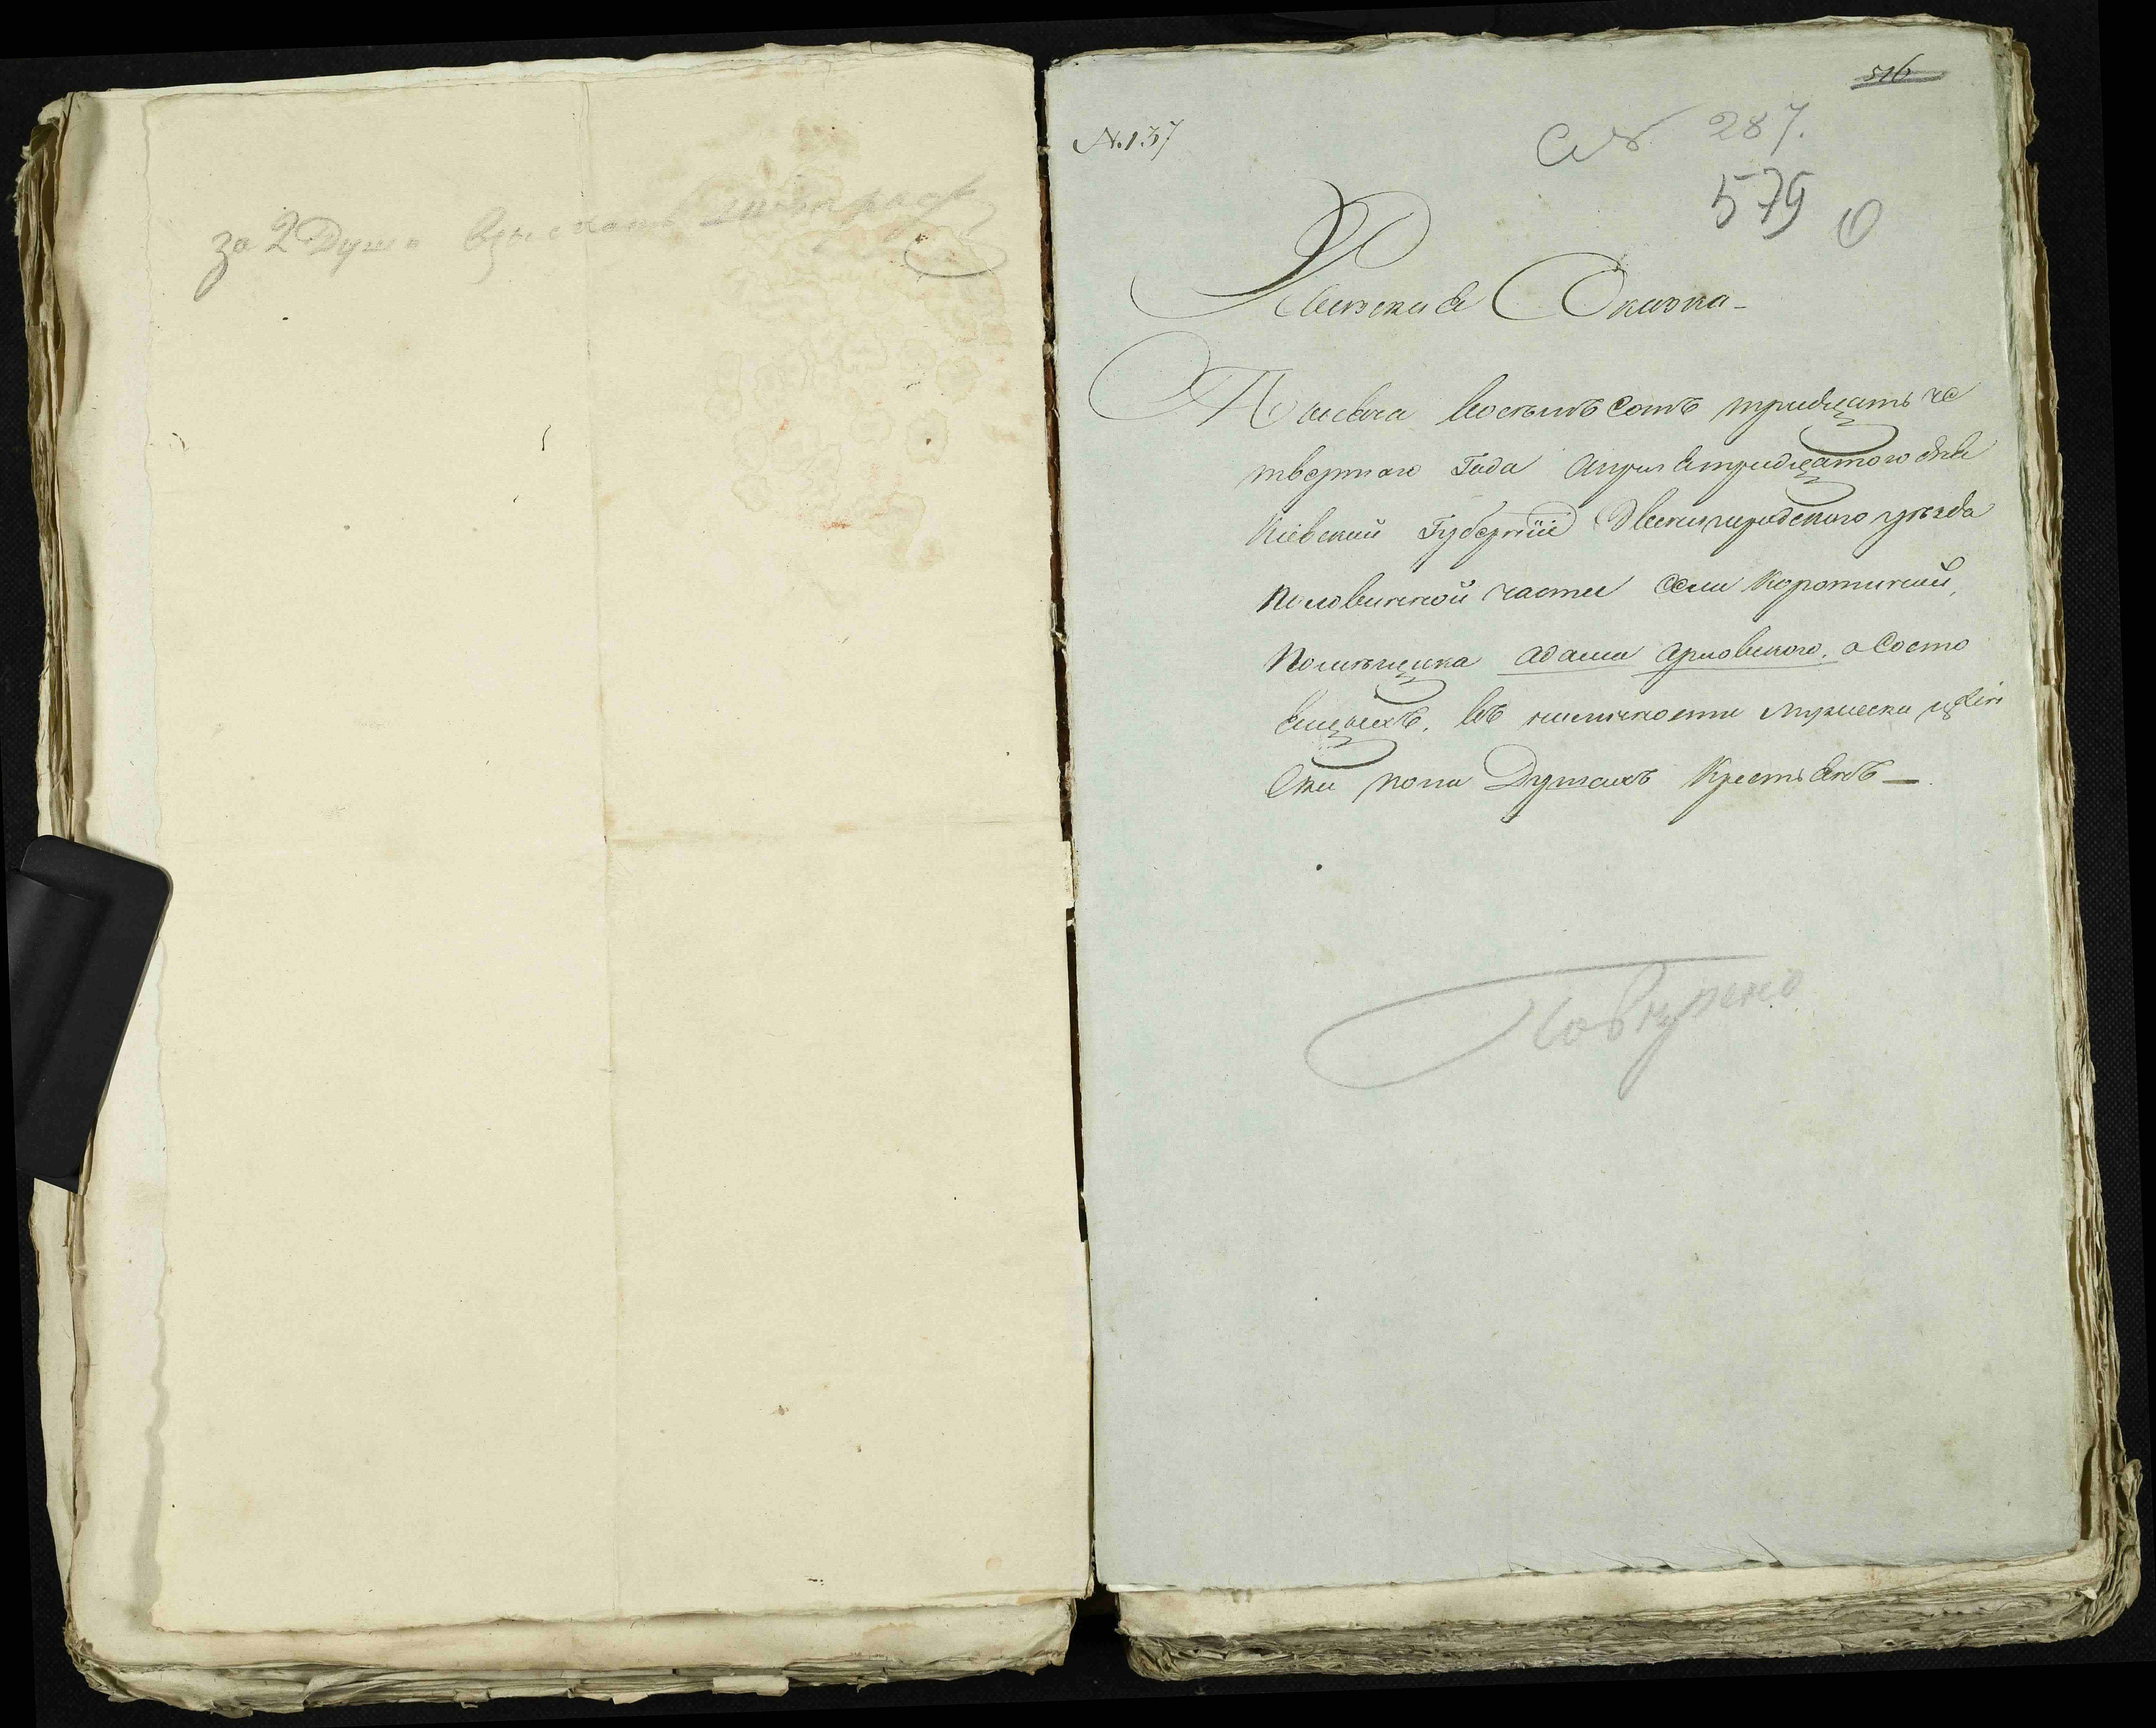 за 2 Души взыскать
516
N. 137
287.
579
Ревизская Сказка
Тысяча восемъ сотъ тридцать че
твертаго Года Апреля тридцатого дня
Кіевской Губерніи Звенигородского уезда
Половинной части Села
Помещика Адама Арловского. о Состо
ящыхъ, въ наличности мужеска и жен
ска пола Душахъ Крестьянъ —